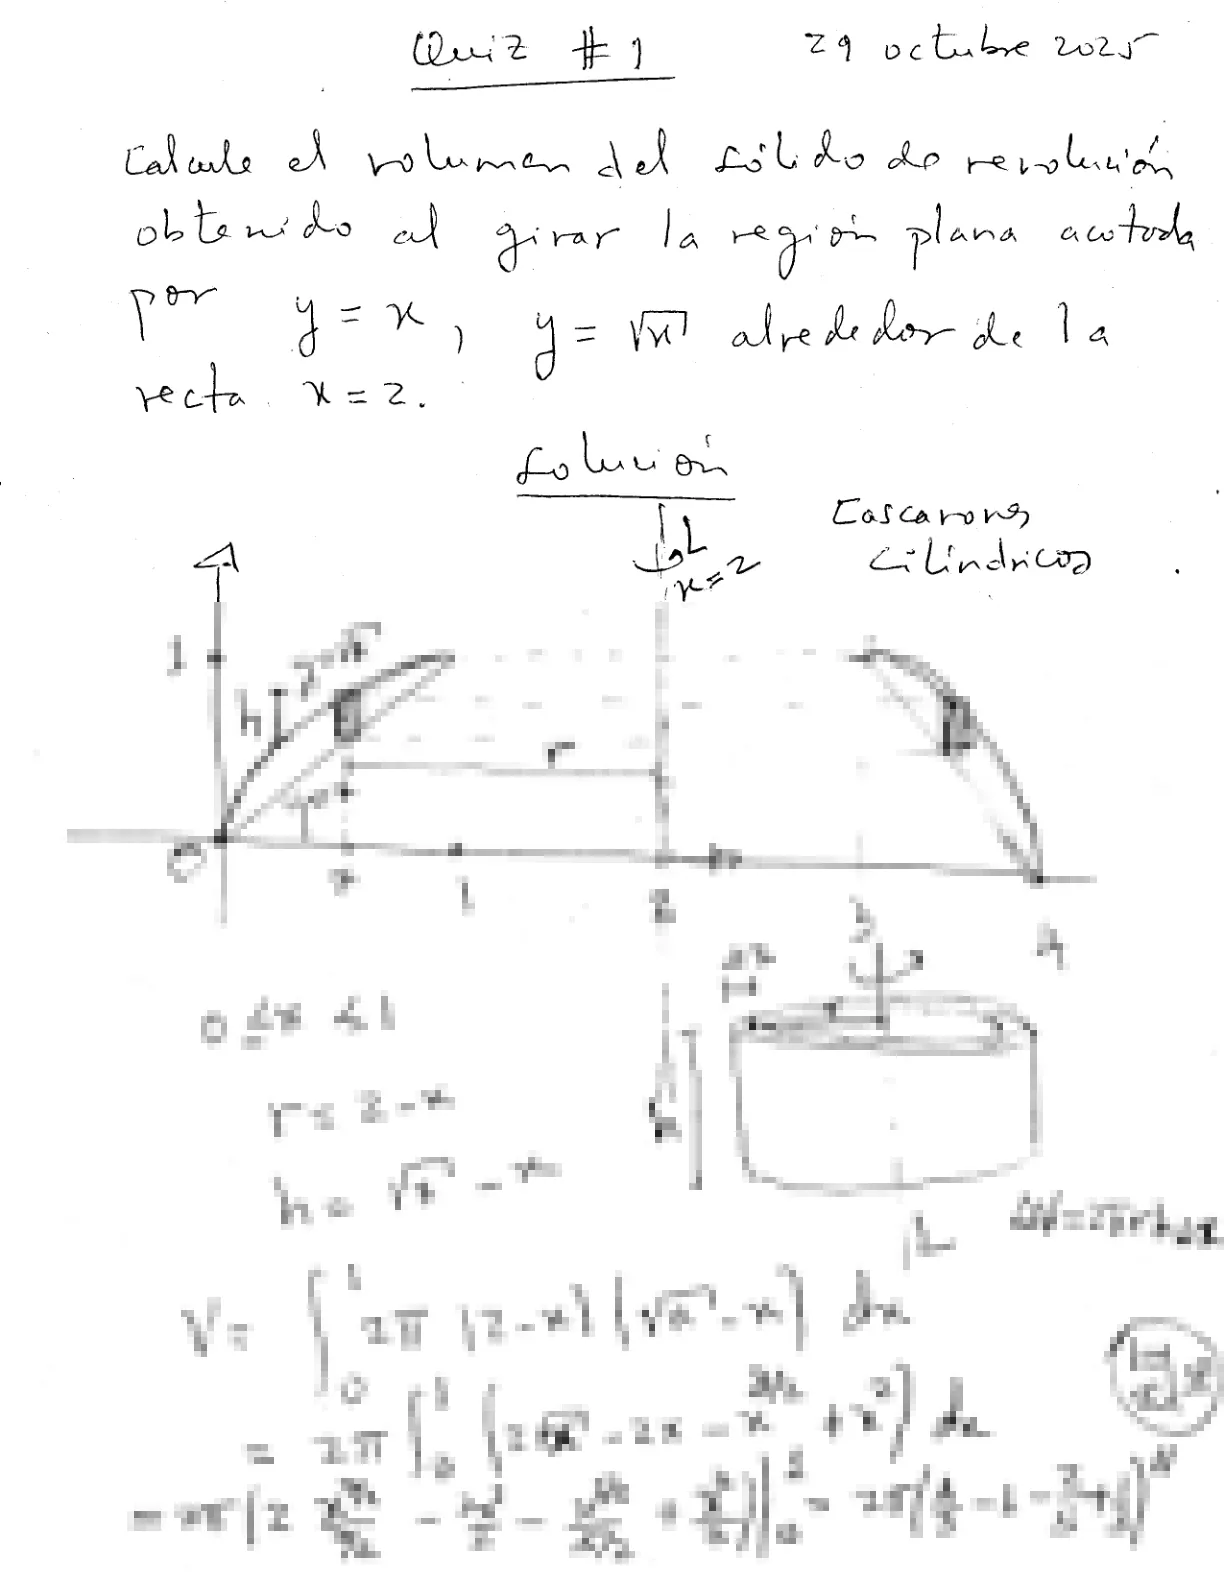 Quiz # 1 29 octubre 2025
Calcule el volumen del sólido de revolución
obtenido al girar la región plana acotada
por y = x, y = √x alrededor de la
recta x = 2.
Solución
L
x = 2
Cascarones
cilíndricos
1
y=√x
h
r
0 x 1 2 3 4
Δx
0 ≤ x ≤ 1
r = 2 - x
h = √x - x
L
ΔV = 2πrhΔx
V = ∫₀¹ 2π (2-x)(√x - x) dx
= 2π ∫₀¹ (2√x - 2x - x^{3/2} + x²) dx